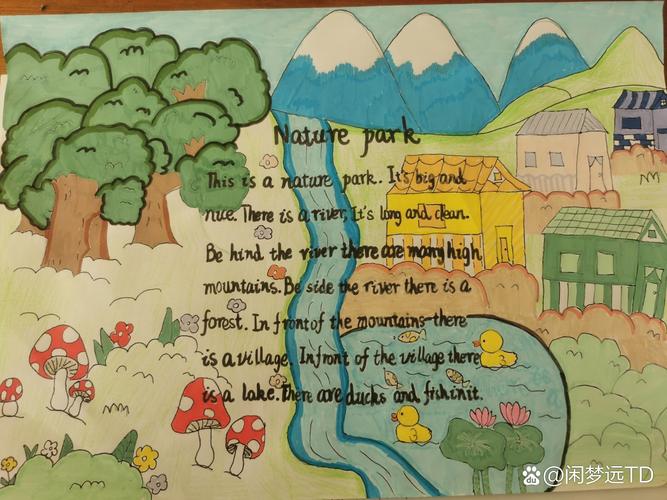 Nature park
This is a nature park. It's big and
nice. There is a river, It's long and clean.
Be hind the river there are many high
mountains. Be side the river there is a
forest. In front of the mountains there
is a village. Infront of the village there
is a lake. There are ducks and fish init.
@闲梦远TD